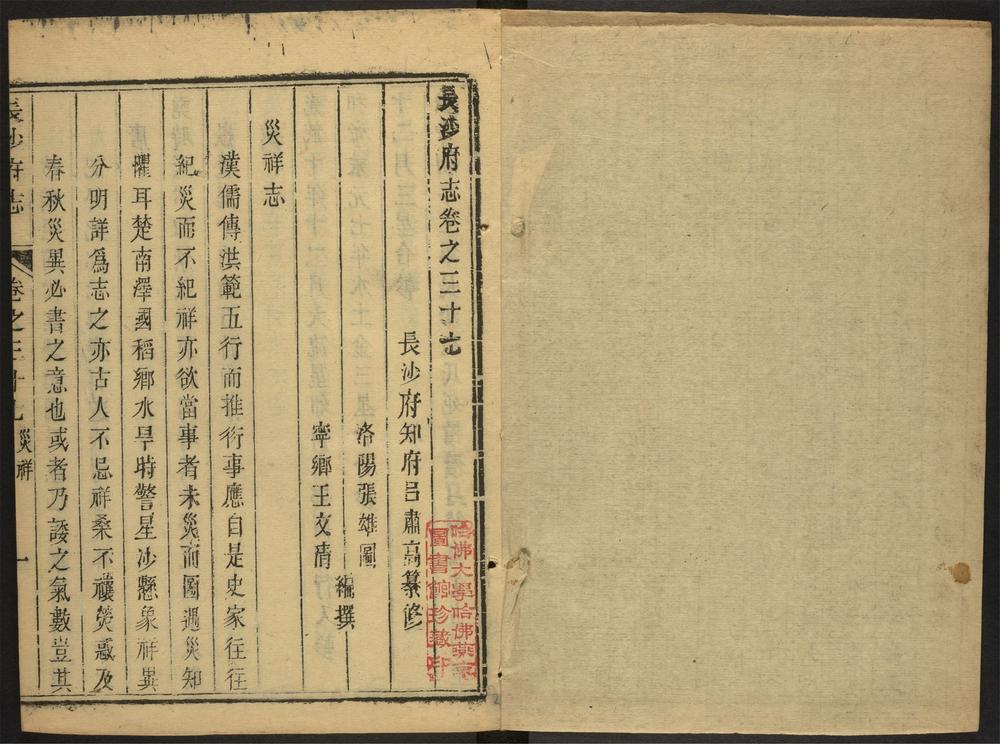 長沙府志卷之三十七
長沙府知府呂肅高纂修
洛陽張雄圖
寧鄉王文清
編撰
災祥志
漢儒傳洪範五行而推衍事應自是史家往往
紀災而不紀祥亦欲當事者未災而圖遇災知
懼耳楚南澤國稻鄉水旱時警星沙懸象祥異
分明詳爲志之亦古人不忌祥桑不禳熒惑及
春秋災異必書之意也或者乃諉之氣數豈其
長沙府志
卷之三十七
災祥
一
哈佛大學哈佛燕京
圖書館珍藏印